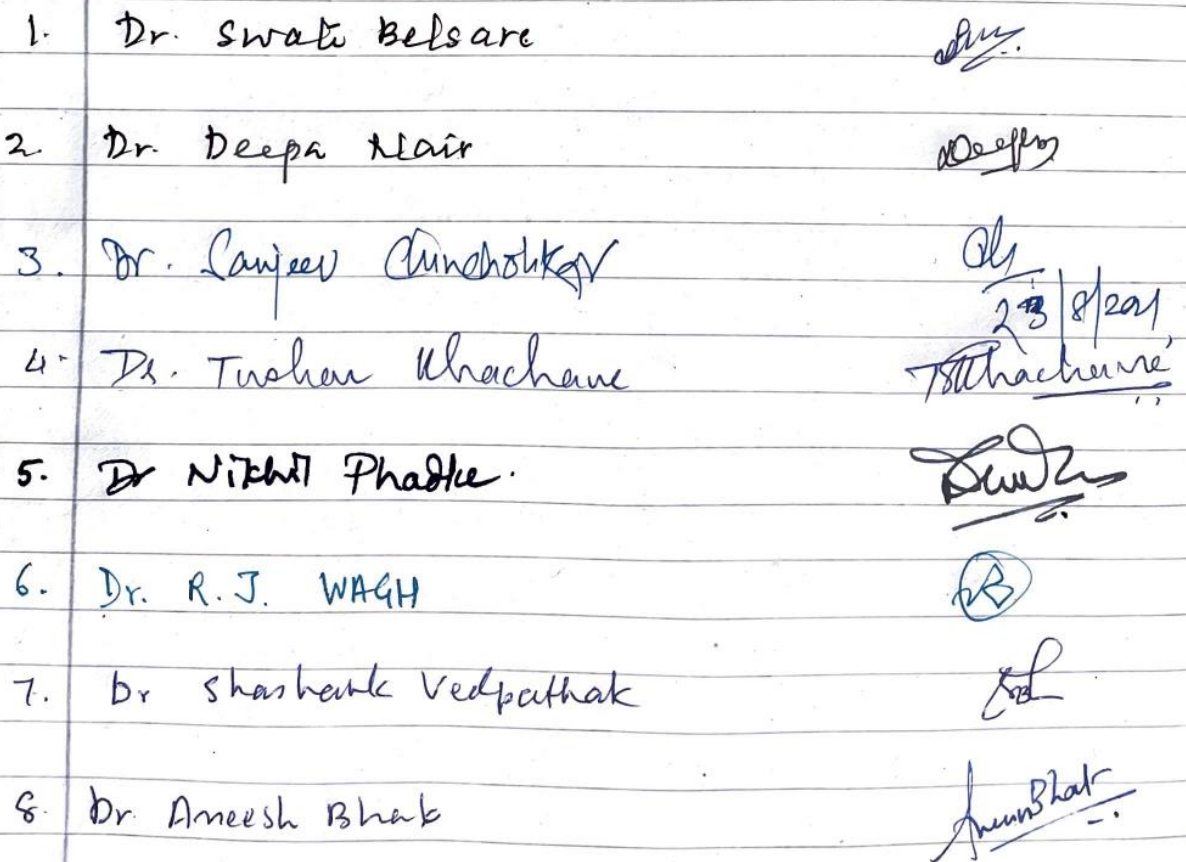 1. Dr. Swati Belsare
2. Dr. Deepa Nair Deepa
3. Dr. Sanjeev Chincholikar
23/8/2021
4. Dr. Tushar Khachane TSKhachane
5. Dr Nikhil Phadke.
6. Dr. R. J. WAGH
7. Dr Shashank Vedpathak
8. Dr. Aneesh Bhat AneeshBhat